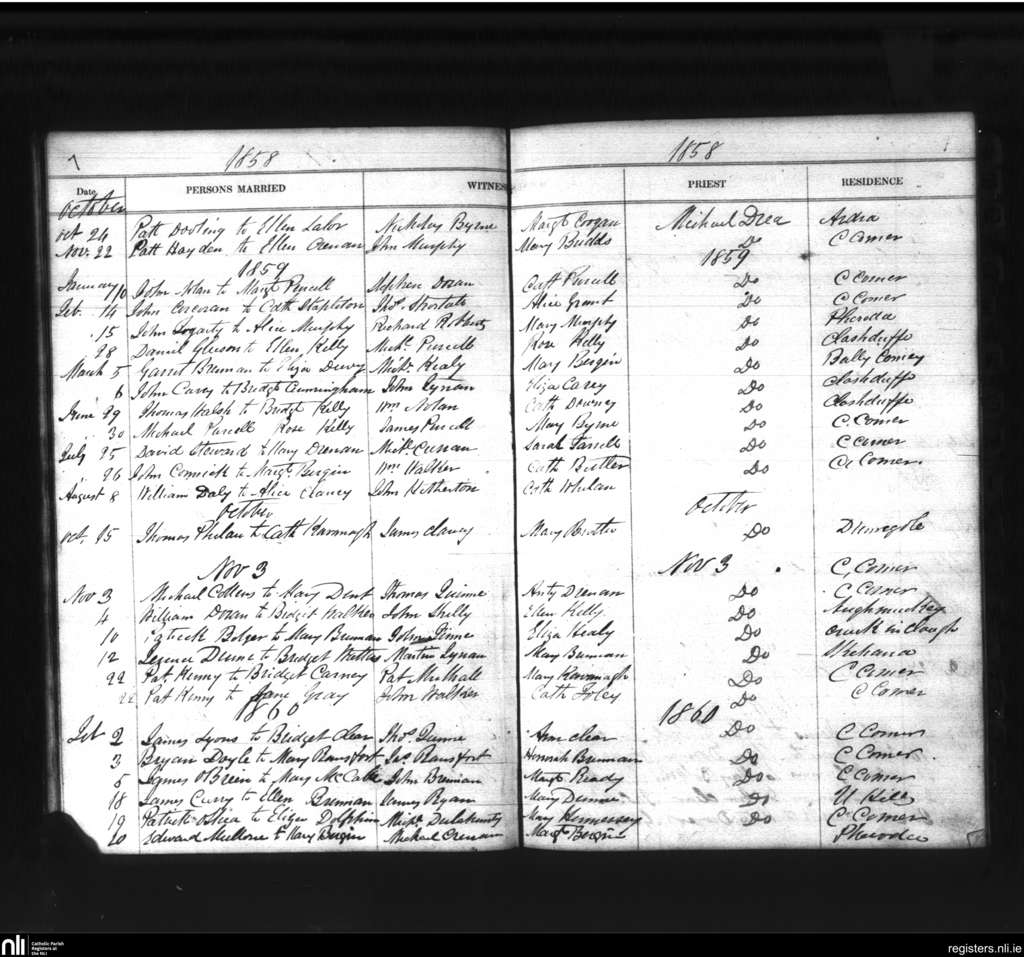 7 1858 1858
Date PERSONS MARRIED WITNES PRIEST RESIDENCE
October
Oct 24 Patt Dooling to Ellen Lalor Nicholas Byrne Margt Corgan Michael Drea Ardra
Nov. 22 Patt Hayden to Ellen Brenan John Murphy Mary Budds Do C Comer
1859 1859
January 10 John Nolan to Margt Purcell Stephen Doran Catt Purcell Do C Comer
Feb. 14 John Corcoran to Cath Stapleton Thos. Alice Grant Do C Comer
15 John Fogarty to Alice Murphy Richard Roberts Mary Murphy Do Pheroda
28 Daniel Gleeson to Ellen Kelly Michl. Purcell Rose Kelly Do Clashduffe
March 5 Garret Brennan to Eliza Michl. Healy Mary Bergin Do Bally Comey
6 John Carey to Bridgt Cunningham John Lynan Eliza Carey Do Clashduffe
June 29 Thomas Walsh to Bridgt Kelly Wm Nolan Cath Downey Do Clashduffe
30 Michael Purcell Rose Kelly James Purcell Mary Byrne Do C. Comer
July 25 David Steward to Mary Drenan Michl Curran Sarah Farrell Do C Comer
26 John Cormick to Margt Bergin Wm Walker Cath Butler Do C Comer
August 8 William Daly to Alice Clancy John Hetherton Cath Whelan
October October
Oct. 25 Thomas Phelan to Cath Kavanagh James Clancy Mary Do
Nov 3 Nov 3 C, Comer
Nov 3 Michael to Mary Dent Thomas Quinne Drenan Do C Comer
4 William Doran to Bridget Walker John Shelly Ellen Kelly Do
10 Patrick Bolger to Mary Brennan John Eliza Healy Do Cruck in clough
12 Dunne to Bridget Martin Lynan Mary Brennan Do
22 Pat Kenny to Bridget Carney Pat Mulhall Mary Kavanagh Do C Comer
22 Pat Kenny to Jane Gray John Walker Cath Foley Do C Comer
1860 1860
Feb 2 James Lyons to Bridget Clear Thos. Quinne Ann Clear Do C Comer
3 Bryan Doyle to Mary Ransfort Jas. Ransfort Hannah Brennan Do C Comer
5 James O Brein to Mary McCabe John Brennan Margt Ready Do C Comer
18 James Curry to Ellen Brennan Ryan Mary Dunne Do
19 Patrick to Eliza Dolphin Mary Hennessey Do C Comer
20 Edward Mullone to Mary Bergin Michael Brenan Margt Bergin Pheroda
nli Catholic Parish
Registers at
the NLI
registers.nli.ie